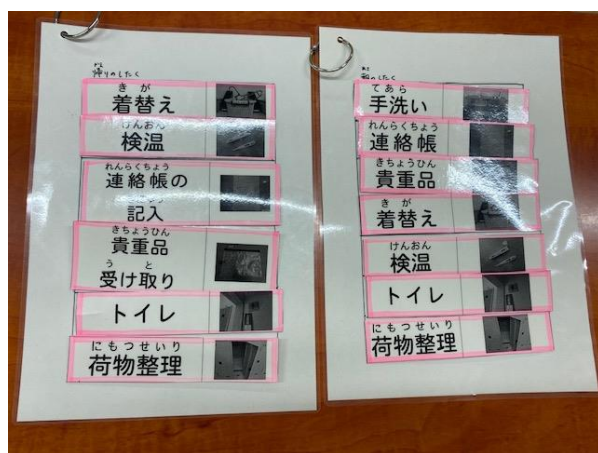 かえ
帰りのしたく
きが
着替え
けんおん
検温
れんらくちょう
連絡帳の
記入
きちょうひん
貴重品
うと
受け取り
トイレ
にもつせいり
荷物整理
あさ
朝のしたく
てあら
手洗い
れんらくちょう
連絡帳
きちょうひん
貴重品
きが
着替え
けんおん
検温
トイレ
にもつせいり
荷物整理